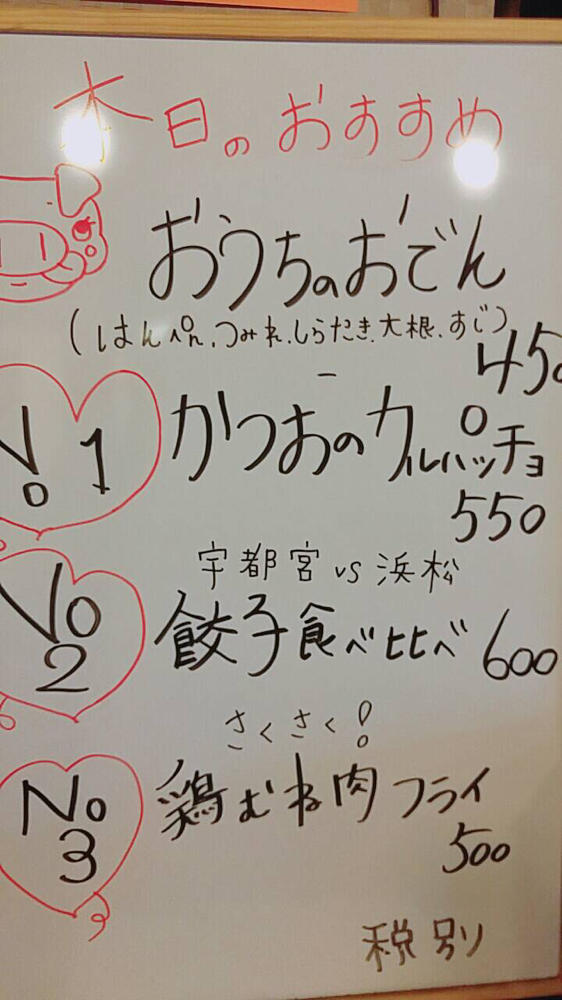 本日のおすすめ
おうちのおでん
(はんぺん、つみれ、しらたき、大根、すじ)
450
No 1
かつおのカルパッチョ
550
宇都宮 vs 浜松
No 2
餃子食べ比べ 600
さくさく!
No 3
鶏むね肉フライ
500
税別